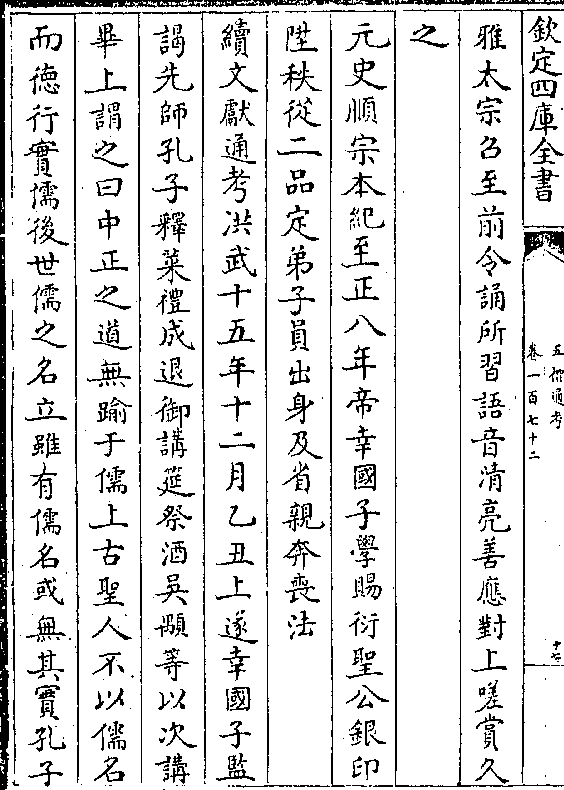 欽定四庫全書
五禮通考
卷一百七十二
雅太宗召至前令誦所習語音清亮善應對上嗟賞久
之
元史順宗本紀至正八年帝幸國子學賜衍聖公銀印
陞秩從二品定弟子員出身及省親奔喪法
續文獻通考洪武十五年十二月乙丑上遂幸國子監
謁先師孔子釋菜禮成退御講筵祭酒吳顒等以次講
畢上謂之曰中正之道無踰于儒上古聖人不以儒名
而德行實儒後世儒之名立雖有儒名或無其實孔子